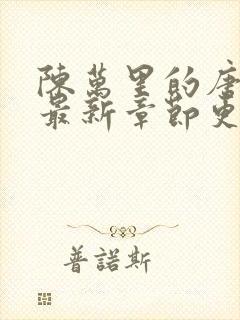 陳萬里的唐
最新章節更
普諾斯